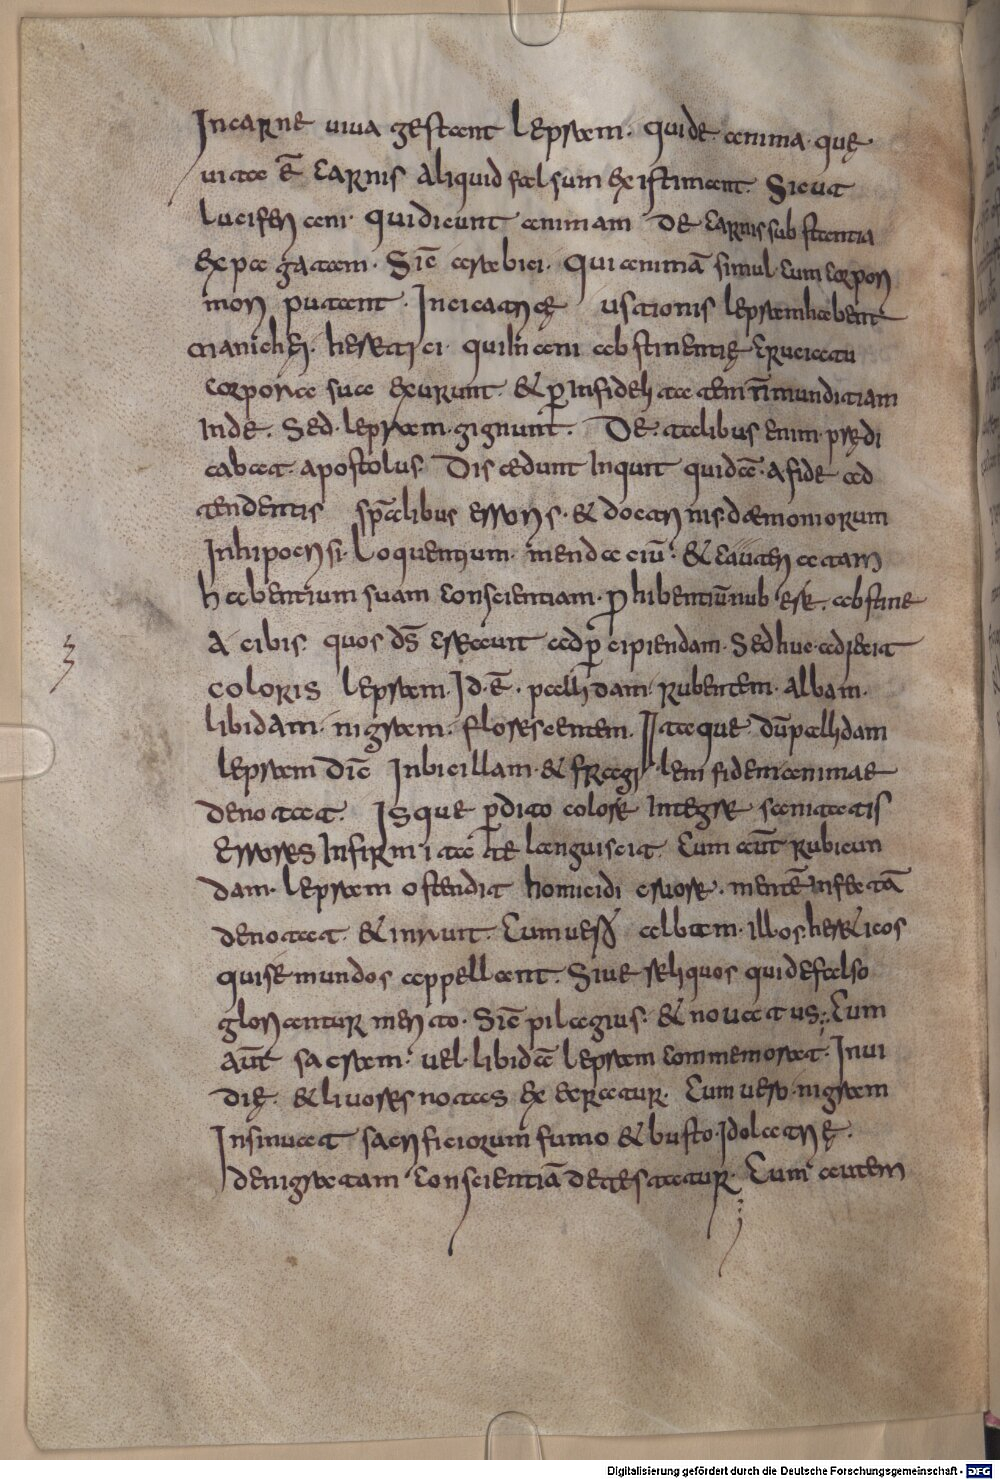 Incarne uiua gestant lepram. quide anima. quę
uitae ē carnis aliquid falsum existimant. Sicut
luciferiani quidicunt animam de carnis substantia
expagatam. Sic̄ arabici. quianimā simul cum corpori
mori putant. Incicatricę ustionis lepramhabent
manichęi. heretici quilniani abstinentię cruciatu
corporea sua exurunt. & ꝑinfidelitatem inmunditiam
inde. sed. lepram. gignunt. De. talibus enim. prędi
cabat apostolus. Discedunt Inquit quidā. afide ad
tendentis sp̄alibus erroris. & doctrinis. dæmoniorum
Inhipocrisi. loquentium. mendaciū. & cautericatam
habentium suam conscientiam. prohibentiūnubere. abstine
a cibis. quos ds̄ creauit adꝑcipiendam. Sedhuc. adiecit
coloris lepram. Id. ē. pallidam. rubentem. albam.
libidam. nigram. florescentem. Itaque dūpallidam
lepram dic̄ Inbicillam. & fragilem fidemanimae
denotat. Isque ꝑdito colore Integre sanitatis
errores Infirmitate languiscit. Cum aut̄ rubicun
dam. lepram ostendit homicidi cruore. mentē infectā
denotat. & inruit. Cumuero albam. illos. hereticos
quise mundos appellant. Siue reliquos quidefalso
gloriantur merito. Sic̄ pilagius. & nouatus. Cum
aut̄ sacram. uel. libidā lepram commemorat. Inui
dię. & liuores notas exercatur. Cum uero. nigram
Insinuat sacrificiorum fumo & busto. Idolatrię.
denigratam conscientiā detestatur. Cum autem
Digitalisierung gefördert durch die Deutsche Forschungsgemeinschaft - DFG